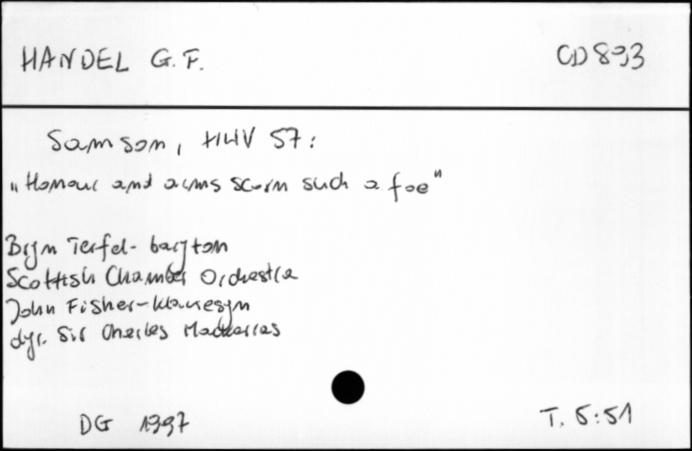 HANDEL G.F.
CD 893
Samson, HWV 57:
„Honour and arms scorn such a foe"
Bryn Terfel - baryton
Scottish Chamber Orchestra
John Fisher - klawesyn
dyr. Sir Charles Mackerras
DG 1997
T. 5:51